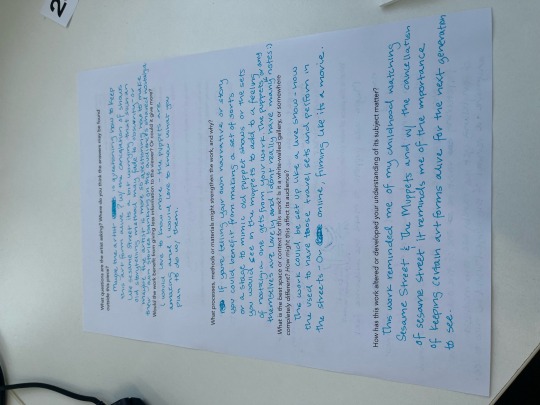 2
What questions are the artist asking? Where do you think the answers may be found
outside this piece?
I think the artist is questioning how to keep
this art form alive w/ the cancellation of shows
like sesame street
Would the work benefit from giving more information to the viewer? Or could it give more?
I would like to know more. The puppets are
amazing and I would love to know what you
plan to do w/ them.
What processes, methods or materials might strengthen the work, and why?
If going telling your own narrative or story
you could benefit from making a set of sorts
or a stage to mimic old puppet shows or the sets
you would see in the muppets to add to a feeling
of nostalgia one gets from your work. The puppets
themselves are lovely and I don't really have many notes :) any
What is the best space or context for this work? Is it a white-walled gallery, or somewhere
completely different? How might this affect its audience?
This work could be set up like a live show - how
the used to have those travel sets and perform in
the streets or online, filming like its a movie.
How has this work altered or developed your understanding of its subject matter?
This work reminded me of my childhood watching
Sesame Street & The Muppets and w/ the cancellation
of sesame street it reminds me of the importance
of keeping certain art forms alive for the next generation
to see.